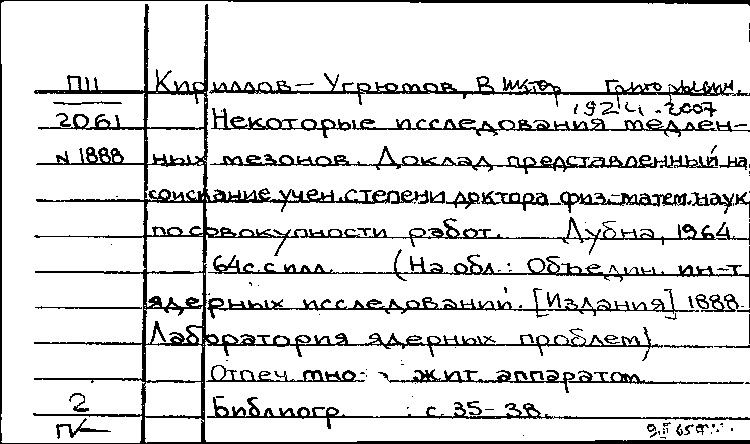 ПII Кириллов-Угрюмов, Виктор Григорьевич.
1924-2007
2061 Некоторые исследования медлен-
N 1888 ных мезонов. Доклад, представленный на
соискание учен. степени доктора физ.-матем. наук
по совокупности работ. Дубна, 1964
64 с. с илл. (На обл.: Объедин. ин-т
ядерных исследований. [Издания] 1888
Лаборатория ядерных проблем)
Отпеч. множит. аппаратом
2 Библиогр. : с. 35-38.